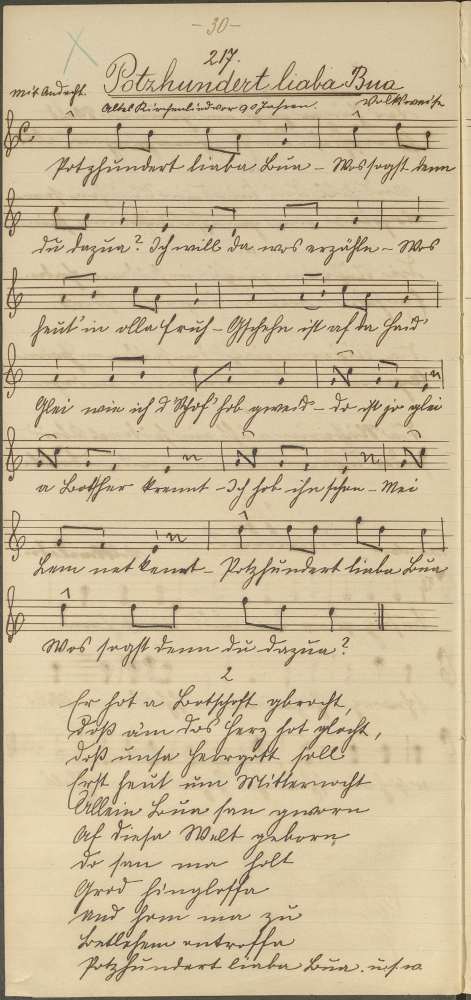 - 30 -
217.
Potzhundert liaba Bua
mit Andacht.
Altes Kirchenlied vor 90 Jahren.
Volksweise
Potzhundert liaba Bua - Wos sogst denn
du dazua? Ich will da wos erzähln - Wos
heut' in olla Fruh - Gschehn ist af da Haid'
Glei wie ich d' Schof' hob gweid' - do ist jo glei
a Botscher krennt - Ich hob ihn schon - Mei
Lem net kennt - Potzhundert liaba Bua
Wos sogst denn du dazua?
2
Er hot a Botschoft gbrocht,
doß am das Herz hot glocht,
doß unsa Herrgott soll
Erst heut um Mitternocht
Allein Bua san gworn
Af diesa Welt geborn
do san ma holt
Grod hingloffa
und hom ma zu
Betlehem ontroffa
Potzhundert liaba Bua. u.s.w.